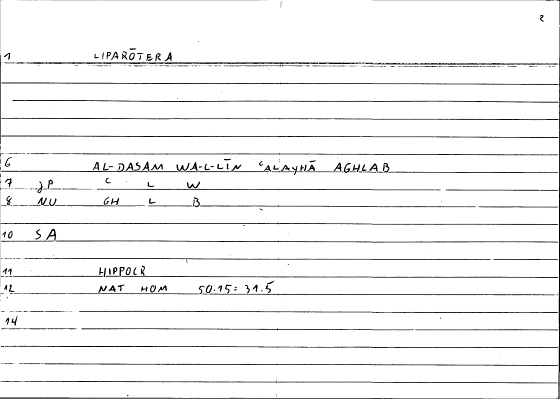 2
1 LIPARŌTERA
6 AL-DASAM WA-L-LĪN ʿALAYHĀ AGHLAB
7 JP ʿ L W
8 NU GH L B
10 SA
11 HIPPOCR
12 NAT HOM 50.15 = 31.5
14